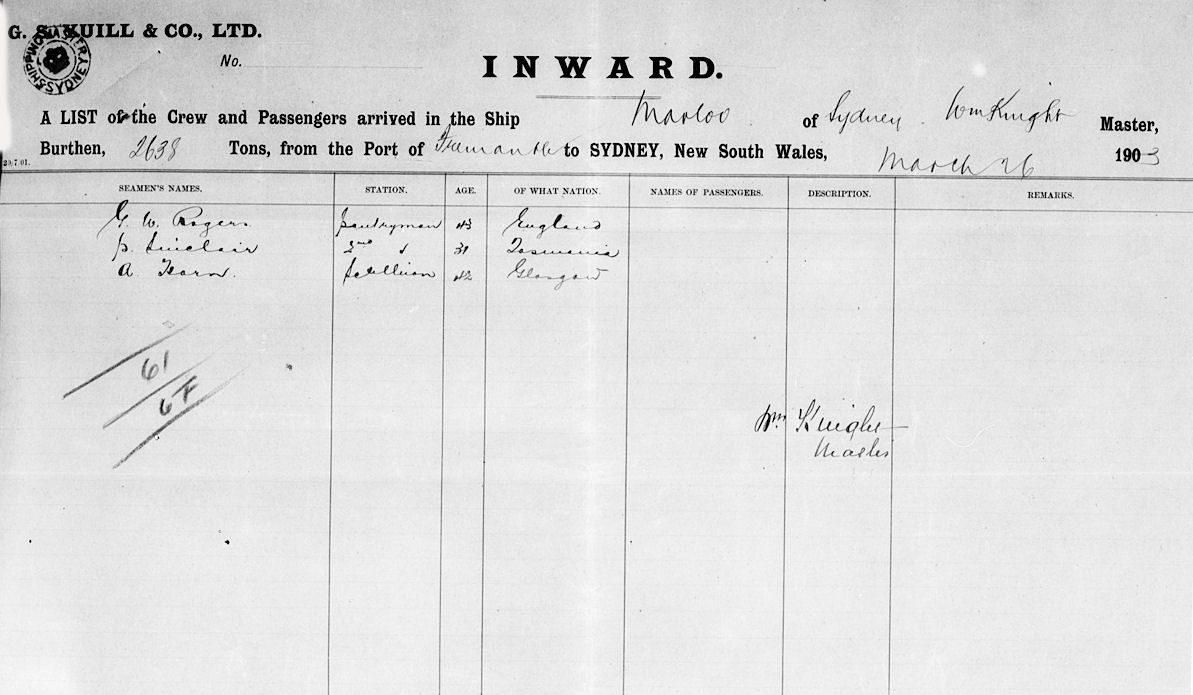 G. S. YUILL & CO., LTD.
SHIPPING MASTER SYDNEY
No.
INWARD.
A LIST of the Crew and Passengers arrived in the Ship Marloo of Sydney Wm Knight Master,
Burthen, 2638 Tons, from the Port of Fremantle to SYDNEY, New South Wales, March 26 1903
20/7/01.
SEAMEN'S NAMES. STATION. AGE. OF WHAT NATION. NAMES OF PASSENGERS. DESCRIPTION. REMARKS.
G. W. Rogers pantryman 43 England
p. Sinclair 2nd 31 Tasmania
A. Scullion 42 Glasgow
61
Wm Knight
Master